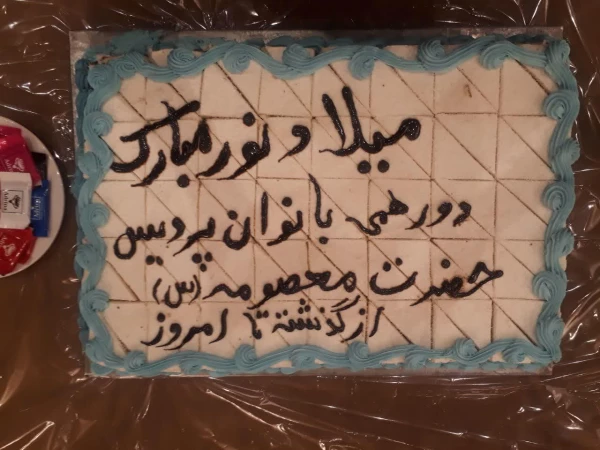 میلاد نور مبارک
دورهمی بانوان پردیس
حضرت معصومه (س)
از گذشته تا امروز